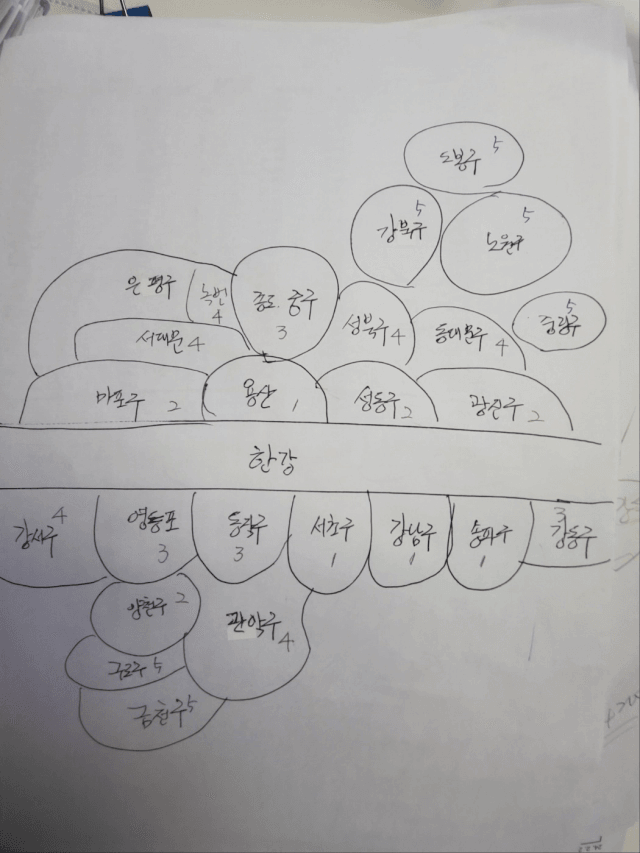 도봉구 5
강북구 5
노원구 5
은평구
녹번 4
종로 중구 3
성북구 4
동대문구 4
중랑구 5
서대문 4
마포구 2
용산 1
성동구 2
광진구 2
한강
강서구 4
영등포 3
동작구 3
서초구 1
강남구 1
송파구 1
강동구 3
양천구 2
관악구 4
구로구 5
금천구 5